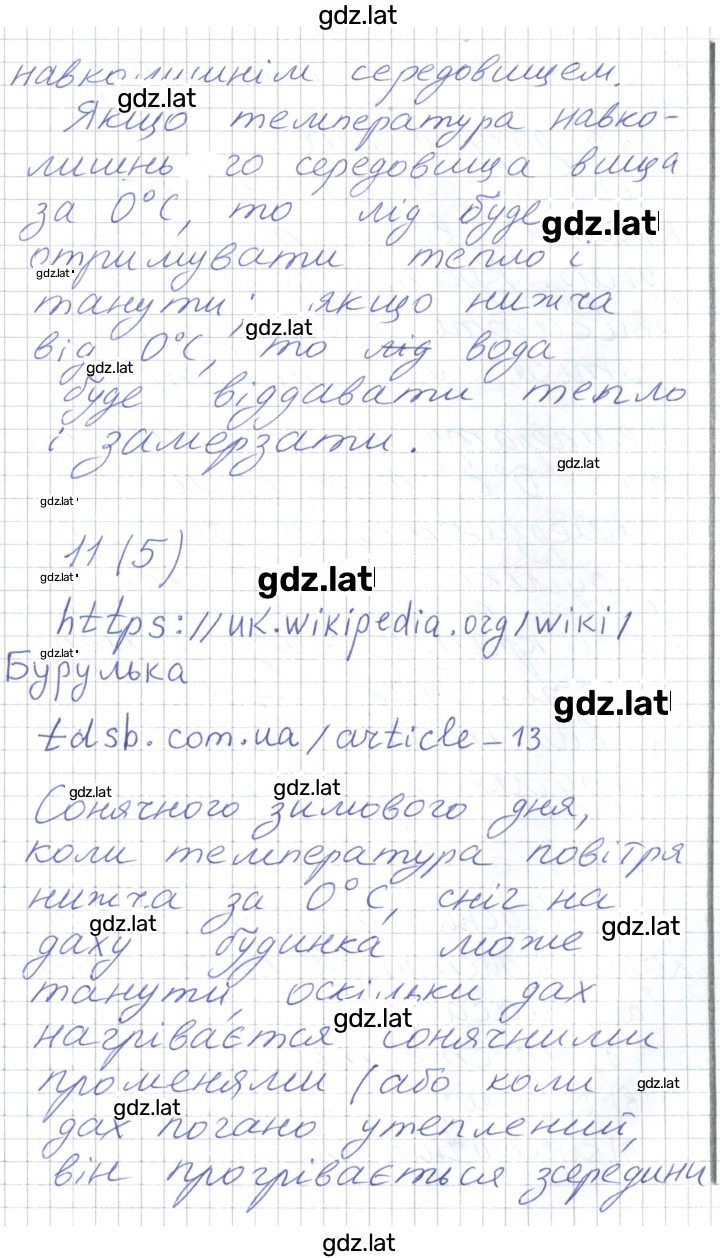 gdz.lat
навколишнім середовищем.
gdz.lat
Якщо температура навко-
лишнь го середовища вища
за 0°C, то лід буде gdz.lat
отримувати тепло і
gdz.lat
танути; якщо нижча
gdz.lat
від 0°C, то лід вода
gdz.lat
буде віддавати тепло
і замерзати.
gdz.lat
gdz.lat
11 (5)
gdz.lat
gdz.lat
https://uk.wikipedia.org/wiki/
gdz.lat
Бурулька
gdz.lat
tdsb.com.ua/article-13
gdz.lat gdz.lat
Сонячного зимового дня,
коли температура повітря
нижча за 0°C, сніг на
gdz.lat gdz.lat
даху будинка може
танути, оскільки дах
gdz.lat
нагрівається сонячними
променями (або коли gdz.lat
gdz.lat
дах погано утеплений,
він прогрівається зсередини
gdz.lat